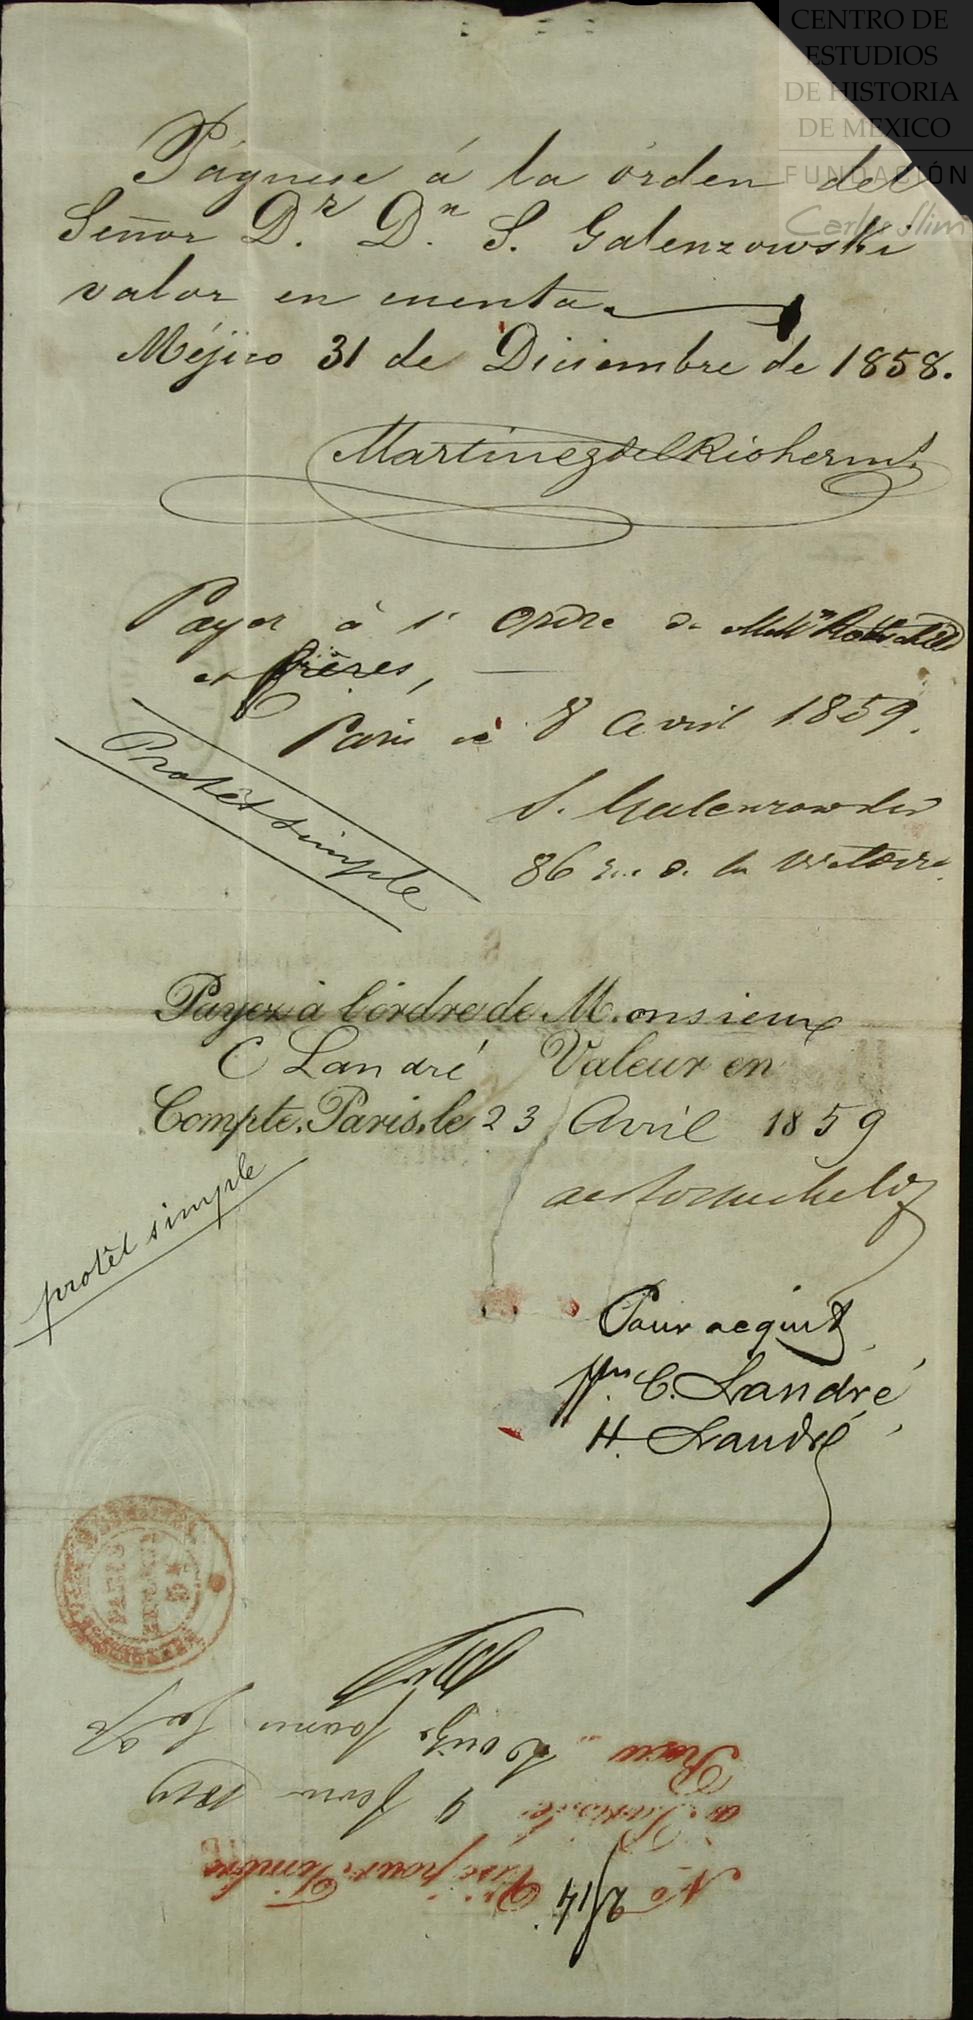 CENTRO DE
ESTUDIOS
DE HISTORIA
DE MÉXICO
FUNDACIÓN
Carlos Slim
Páguese á la órden del
Señor Dr. Dn. S. Galenzowski
valor en cuenta.
Méjico 31 de Diciembre de 1858.
Martinez del Rio hermS.
Payez à l'ordre de Rothschild
et frères,
Paris ce 8 Avril 1859.
Protêt simple
S. Galenzowski
86 rue de la Victoire.
Payez à l'ordre de Monsieur
C Landré Valeur en
Compte. Paris, le 23 Avril 1859
protêt simple
Pour acquit
C. Landré
H. Landré
PARIS
No 2/14 Visé pour Timbre
à Paris le 9
Reçu